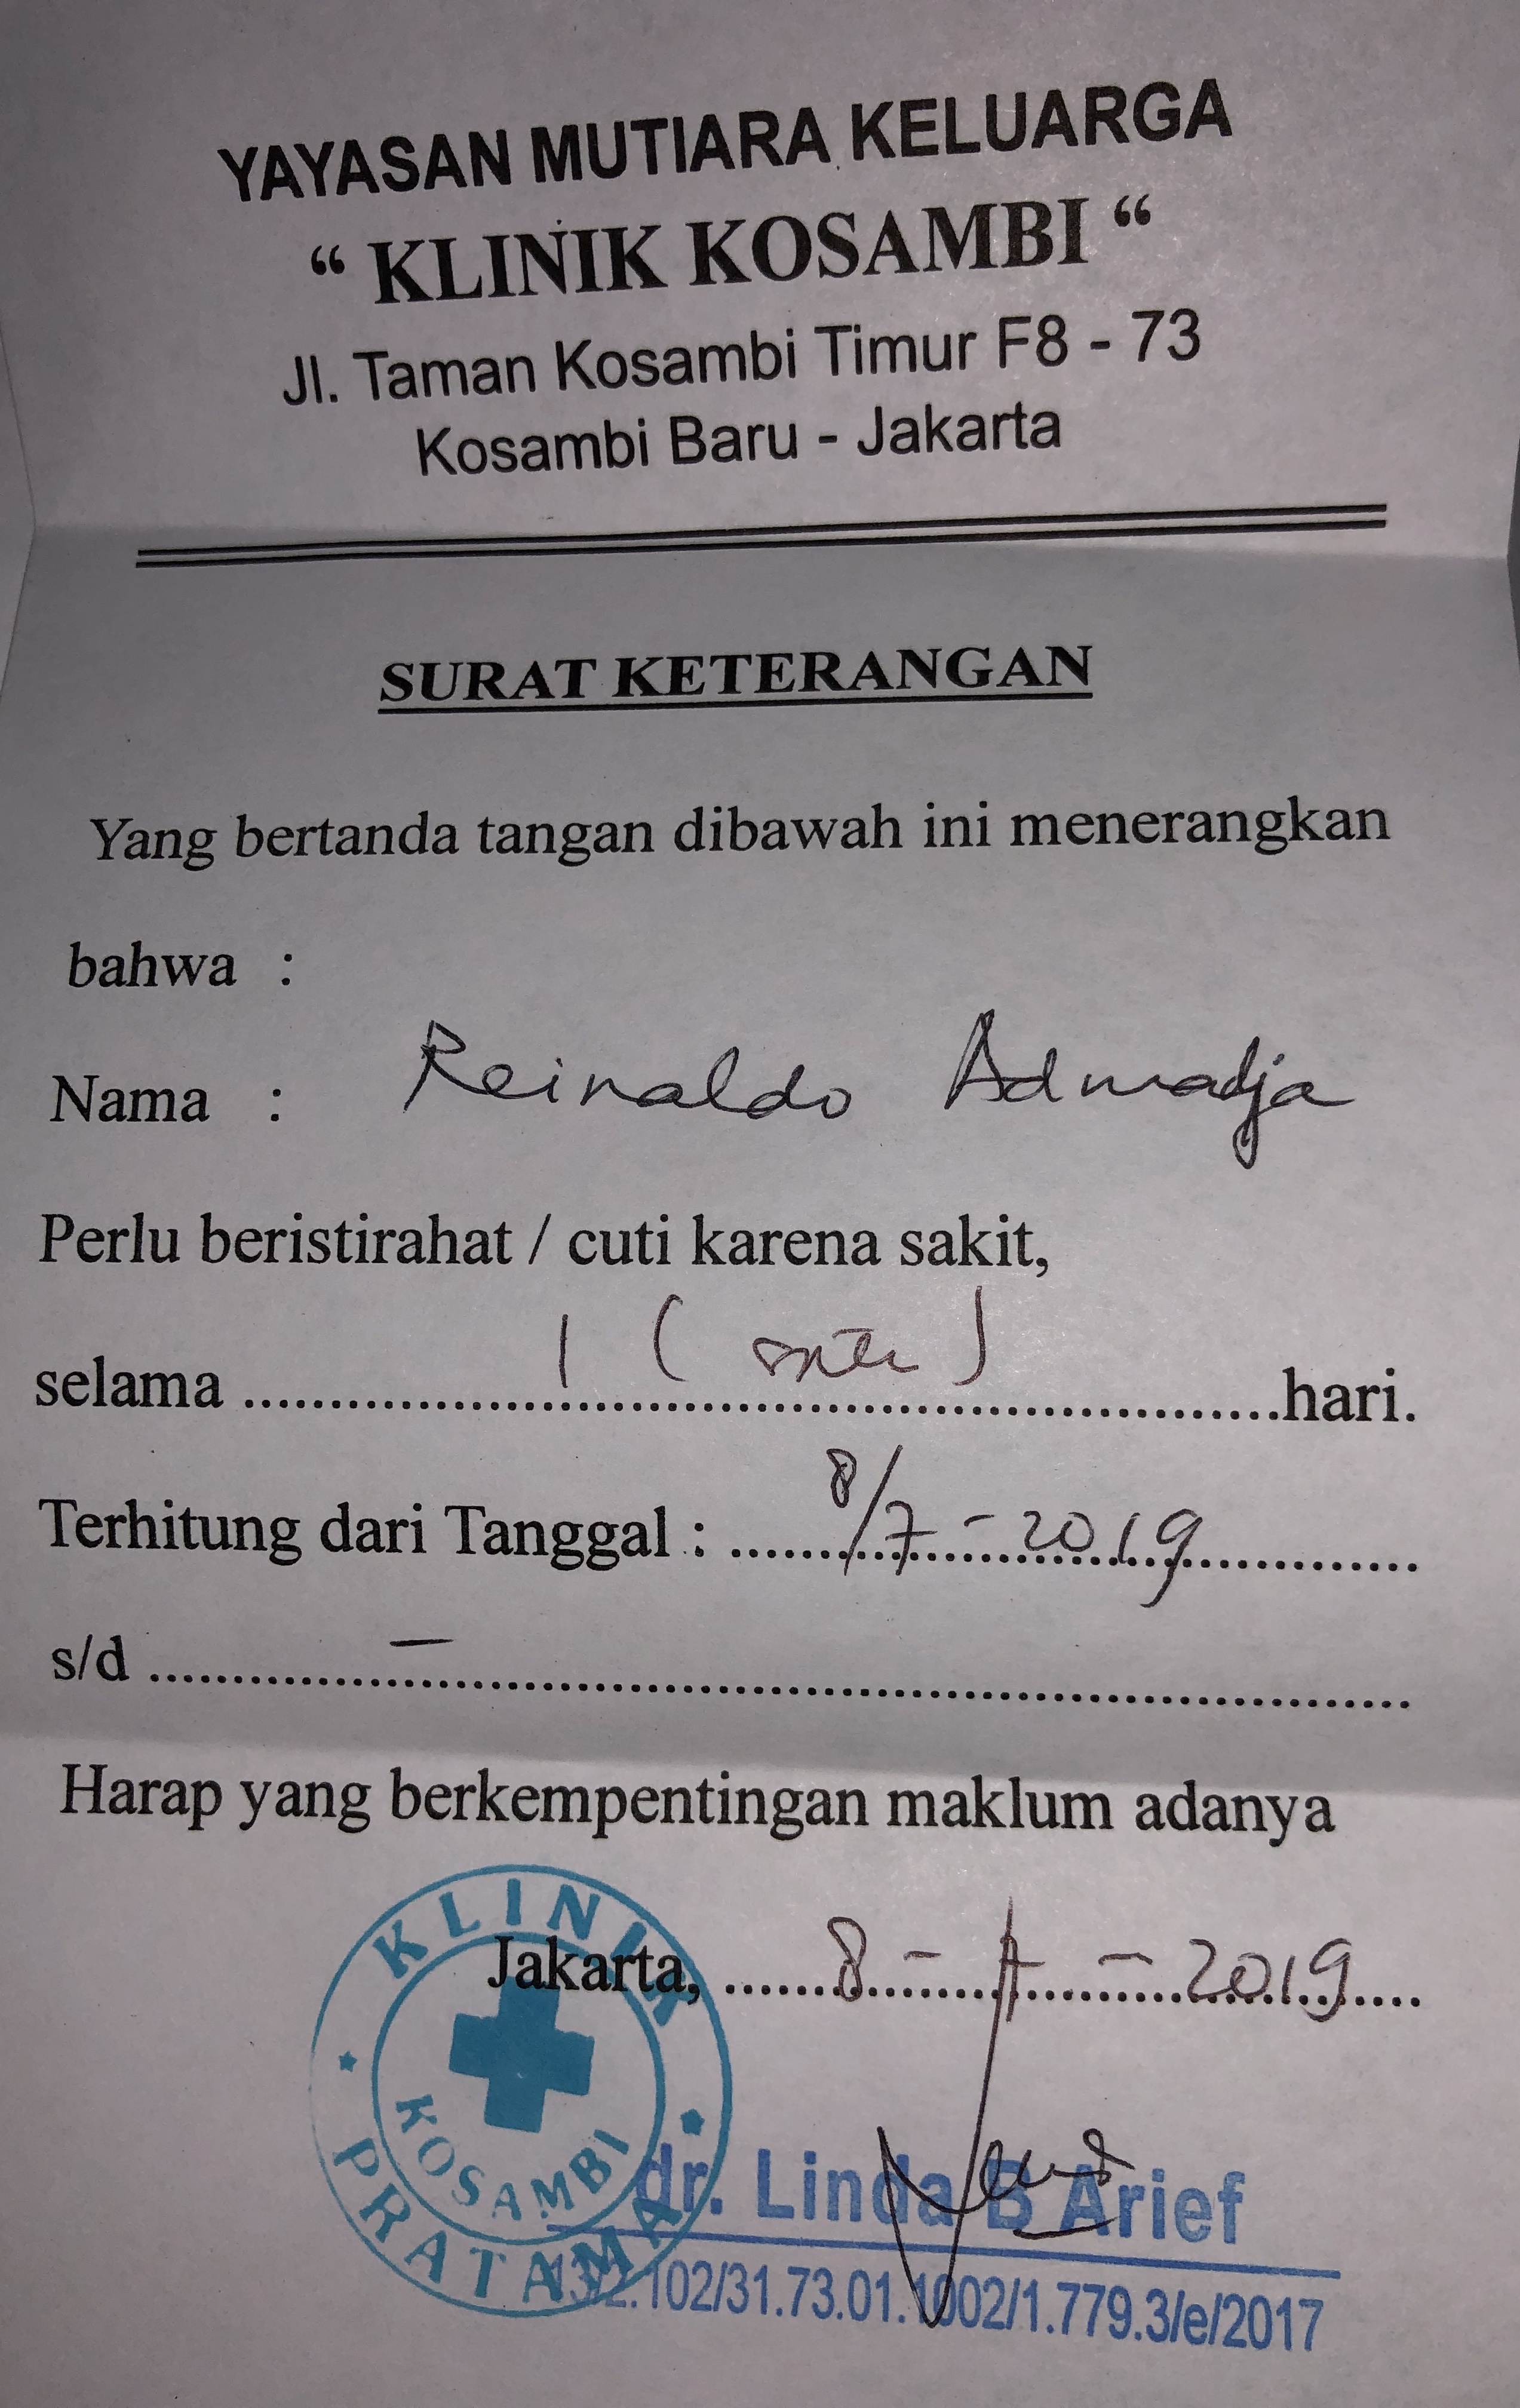 YAYASAN MUTIARA KELUARGA
“ KLINIK KOSAMBI “
Jl. Taman Kosambi Timur F8 - 73
Kosambi Baru - Jakarta
SURAT KETERANGAN
Yang bertanda tangan dibawah ini menerangkan
bahwa :
Nama : Reinaldo Admadja
Perlu beristirahat / cuti karena sakit,
selama 1 ( satu ) hari.
Terhitung dari Tanggal : 8/7 - 2019
s/d -
Harap yang berkempentingan maklum adanya
Jakarta, 8 - 7 - 2019
KLINIK
KOSAMBI
PRATAMA
dr. Linda B Arief
102/31.73.01.1002/1.779.3/e/2017